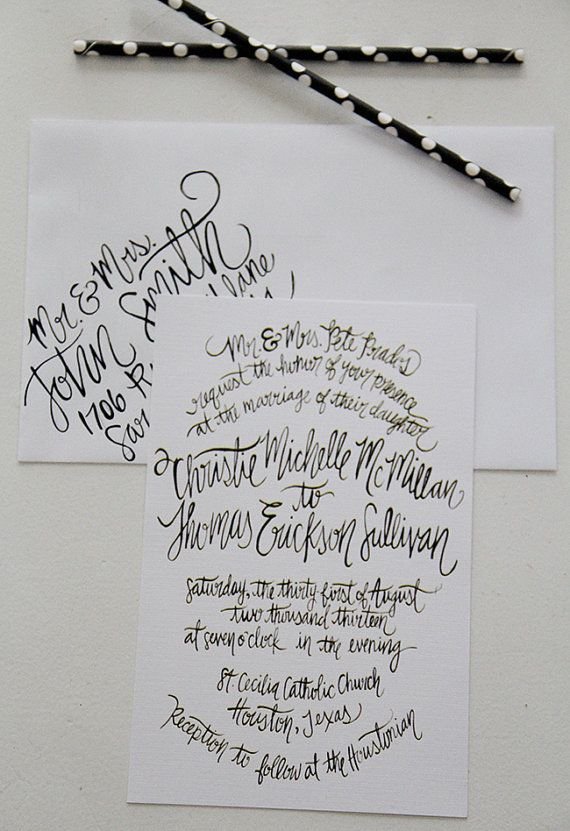 Mr. & Mrs.
John Smith
1706 R. lane
Mr. & Mrs. Pete Prados
request the honor of your presence
at the marriage of their daughter
Christie Michelle McMillan
to
Thomas Erickson Sullivan
Saturday, the thirty first of August
two thousand thirteen
at seven o'clock in the evening
St. Cecilia Catholic Church
Houston, Texas
Reception to follow at the Houstonian